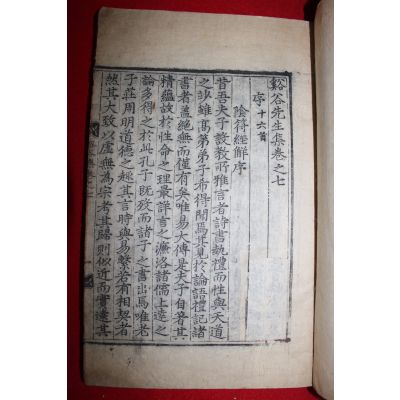 谿谷先生集卷之七
序十六首
陰符經解序
昔吾夫子設敎所雅言者詩書執禮而性與天道
之妙雖高第弟子希得聞焉其見於論語禮記諸
書者蓋絶無而僅有矣唯易大傳是夫子自著其
精蘊故於性命之理最詳言之濂洛諸儒上達之
論多得之於此孔子旣歿而諸子之書出焉唯老
子莊周明道德之趣其言時與易繫若有相契者
然其大致以虛無爲宗考其歸則似近而實遠其